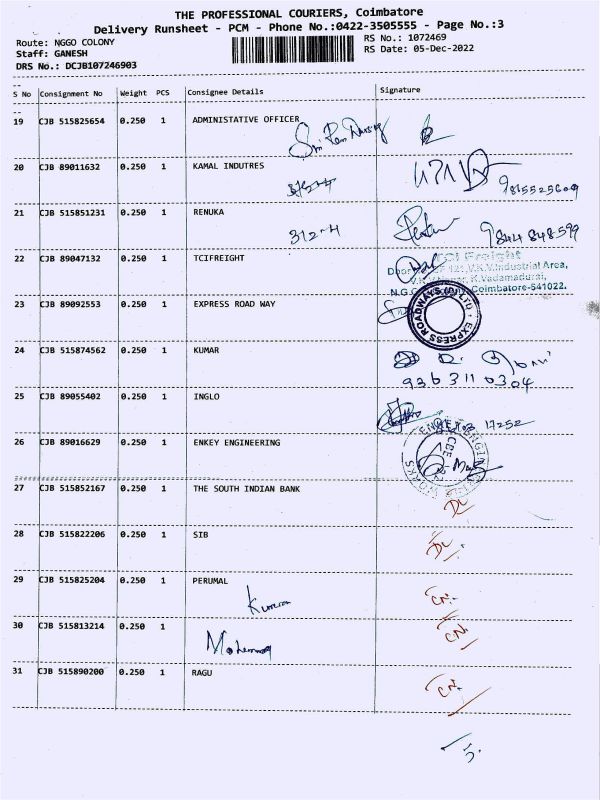 THE PROFESSIONAL COURIERS, Coimbatore
Delivery Runsheet - PCM - Phone No.:0422-3505555 - Page No.:3
Route: NGGO COLONY
RS No.: 1072469
Staff: GANESH
RS Date: 05-Dec-2022
DRS No.: DCJB107246903
S No Consignment No Weight PCS Consignee Details Signature
19 CJB 515825654 0.250 1 ADMINISTATIVE OFFICER
20 CJB 89011632 0.250 1 KAMAL INDUTRES
9865525609
21 CJB 515851231 0.250 1 RENUKA
3127-4 9844848599
22 CJB 89047132 0.250 1 TCIFREIGHT
TCI Freight
Industrial Area,
K.Vadamadurai,
Coimbatore-541022.
23 CJB 89092553 0.250 1 EXPRESS ROAD WAY
EXPRESS ROADWAYS (P) LTD
24 CJB 515874562 0.250 1 KUMAR
9363110304
25 CJB 89055402 0.250 1 INGLO
17252
26 CJB 89016629 0.250 1 ENKEY ENGINEERING
WORKS
27 CJB 515852167 0.250 1 THE SOUTH INDIAN BANK
DL
28 CJB 515822206 0.250 1 SIB
DL
29 CJB 515825204 0.250 1 PERUMAL
CN
30 CJB 515813214 0.250 1
CN
31 CJB 515890200 0.250 1 RAGU
CN
5.